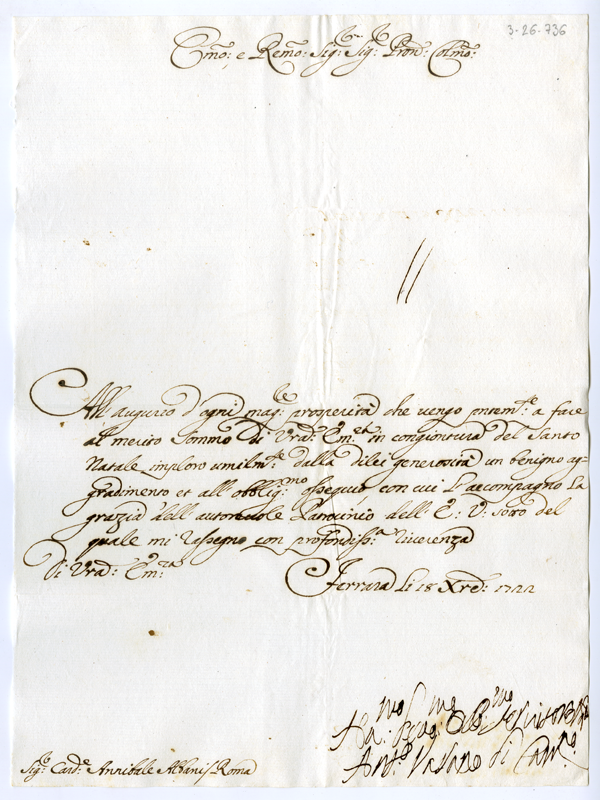 3-26-736
Emo: e Remo: Sig:r Sig:r Pron: Colmo:
All'augurio d'ogni mag:re prosperità che vengo pntem:te a fare
al merito sommo di Vra: Em:za in congiontura del Santo
Natale, imploro umilm:te dalla di lei generosità un benigno ag-
gradimento et all'obblig:mo ossequio con cui l'accompagno la
grazia dell'autorevole Patrocinio dell'E: V: sotto del
quale mi rassegno con profondiss:a riverenza
Di Vra: Em:za
Ferrara li 18 Xre: 1722
Sig:r Card:e Annibale Albani / Roma